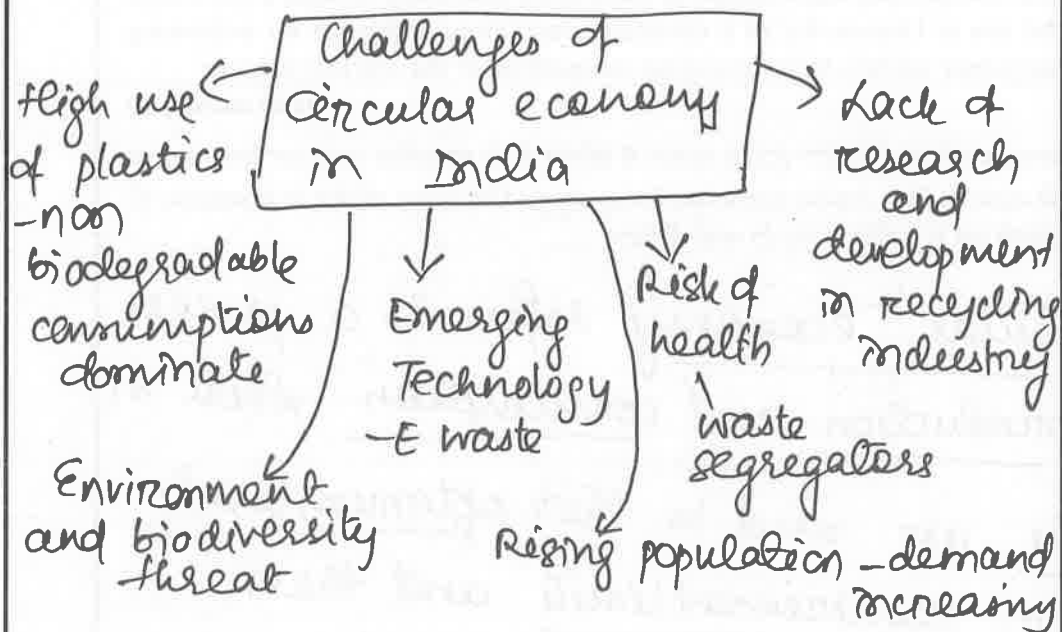 Challenges of
circular economy
in India
High use
of plastics
-non
biodegradable
consumptions
dominate
Environment
and biodiversity
threat
Emerging
Technology
-E waste
Rising population -demand
increasing
Risk of
health
waste
segregators
Lack of
research
and
development
in recycling
industry